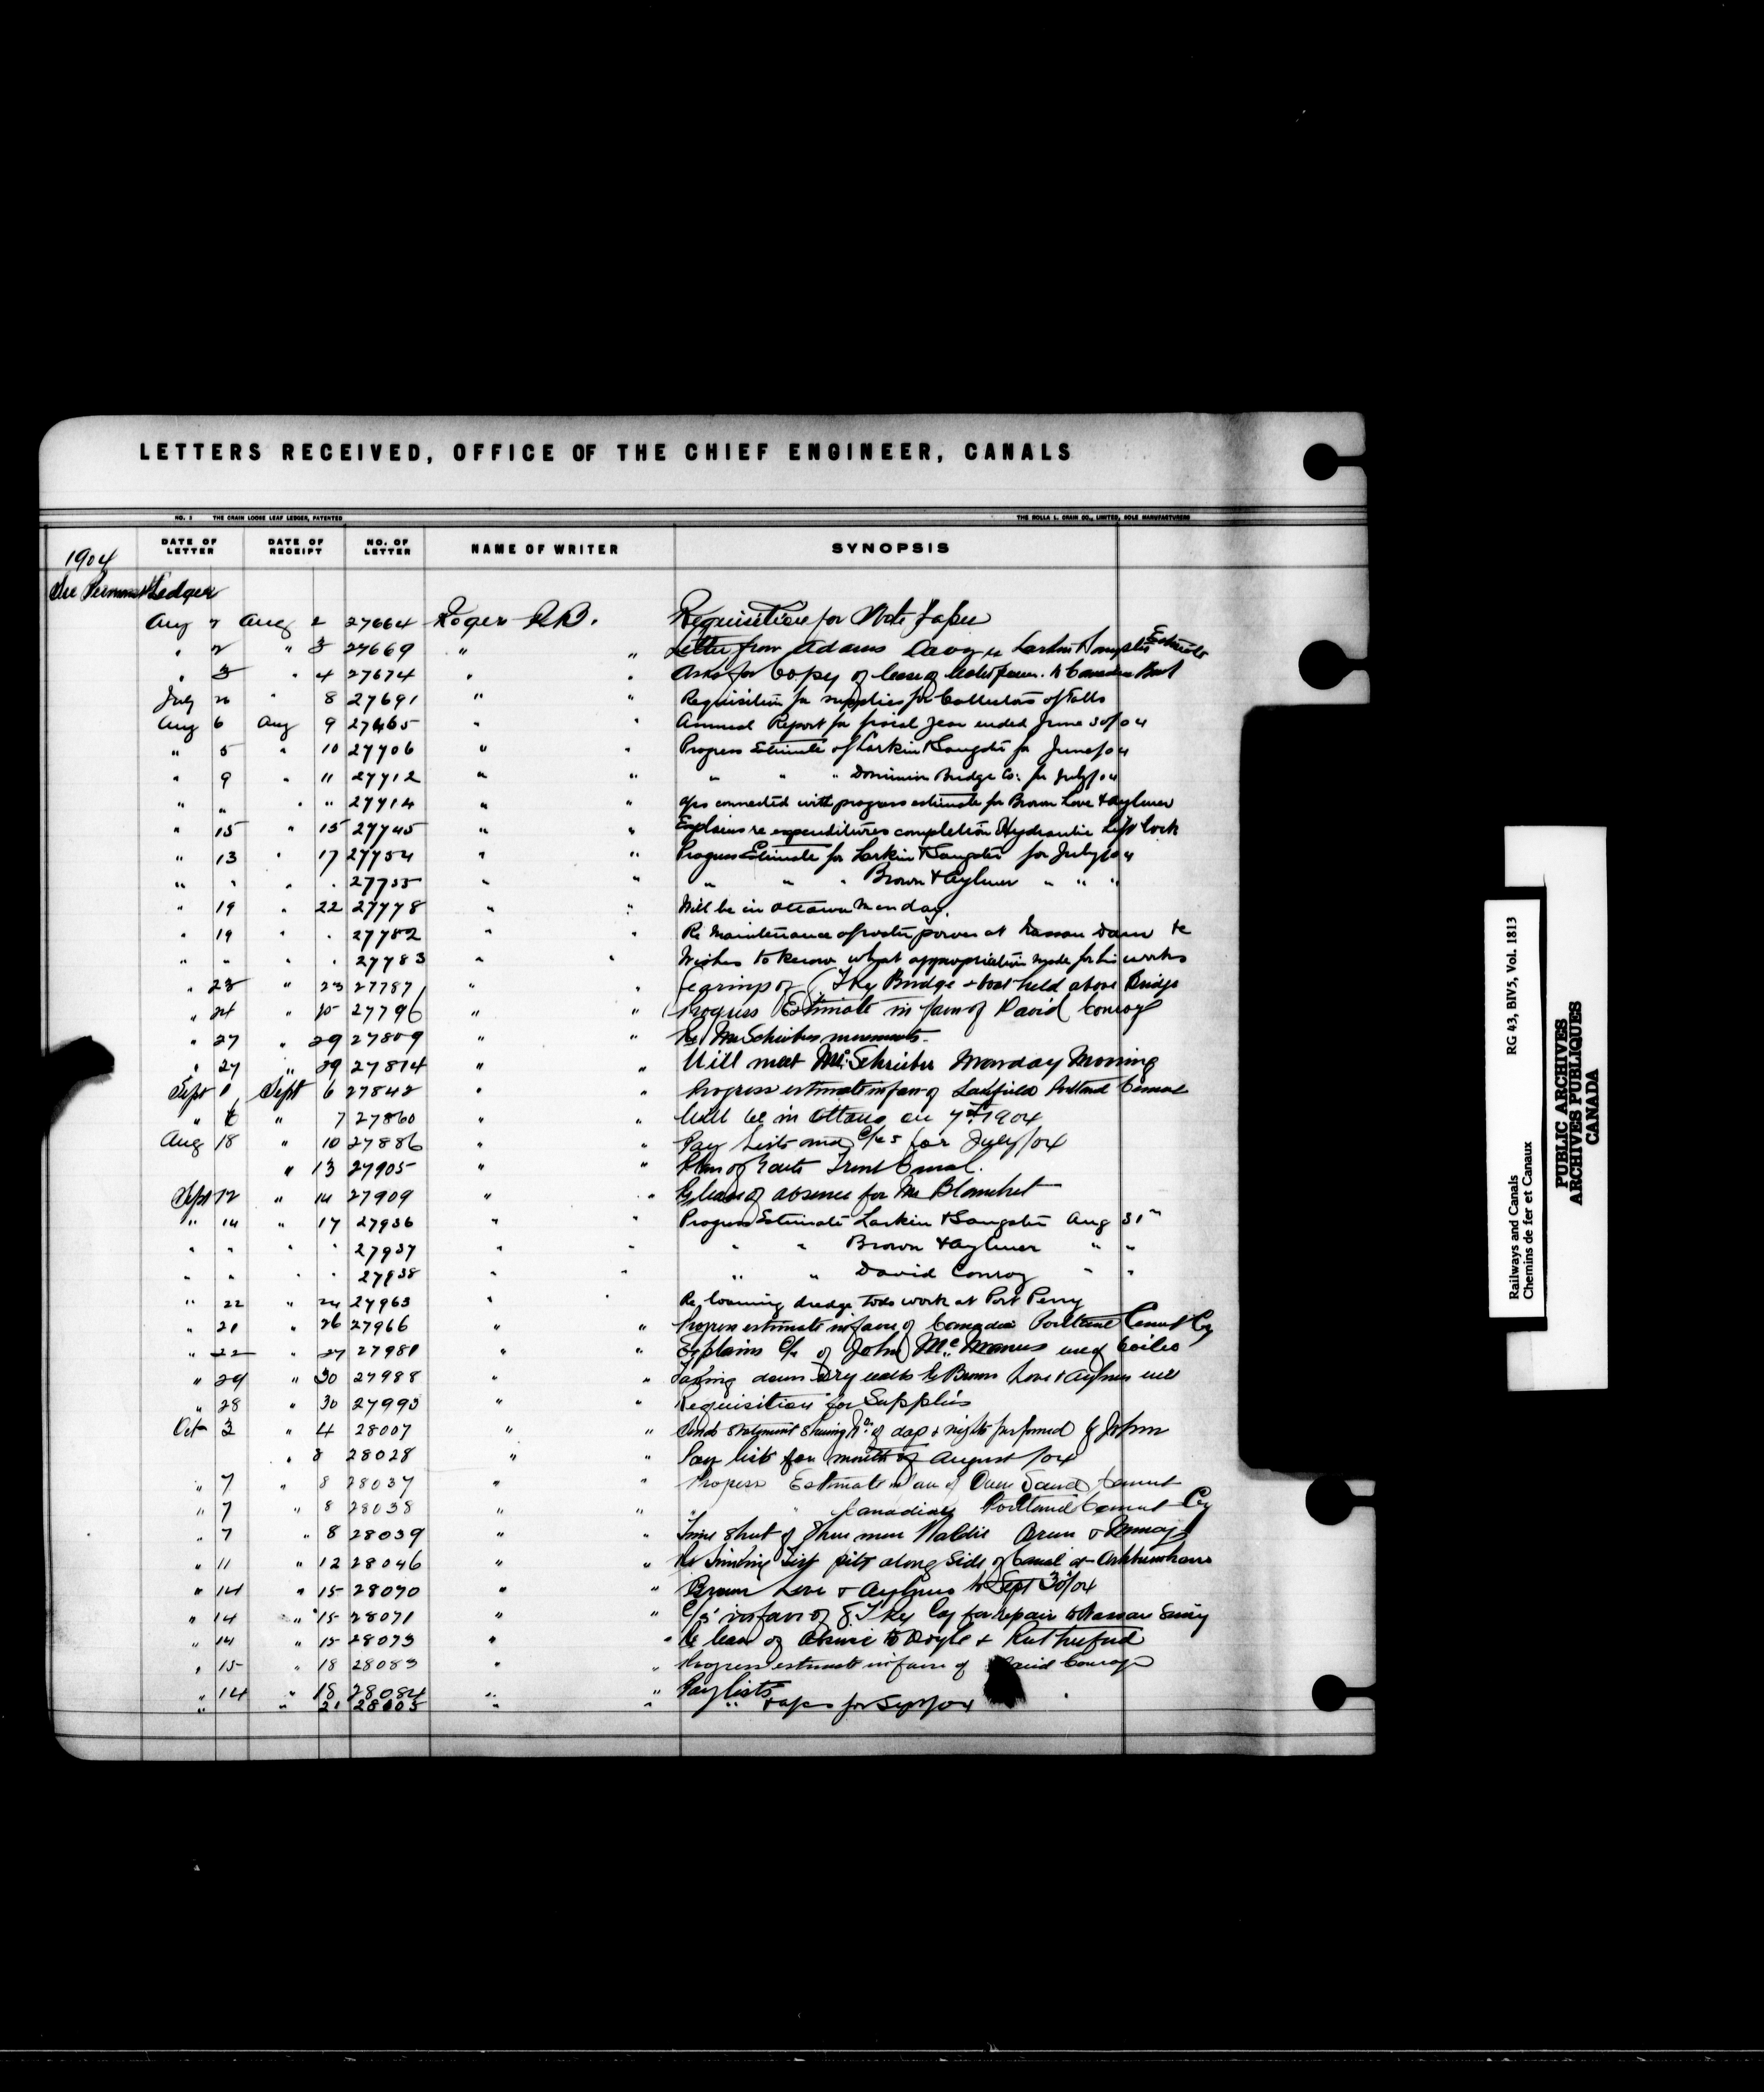 LETTERS RECEIVED, OFFICE OF THE CHIEF ENGINEER, CANALS
NO. 2 THE CRAIN LOOSE LEAF LEDGER, PATENTED THE ROLLA L. CRAIN CO., LIMITED, SOLE MANUFACTURERS
DATE OF LETTER DATE OF RECEIPT NO. OF LETTER NAME OF WRITER SYNOPSIS
1904
Ledger
Aug Aug 2 27664 Rogers R.B. Requisition for Note Paper
" 2 " 3 27669 " " Letter from Adams Davy re Larkin & Sangster Estimate
" 3 " 4 27674 " " Asks for Copy of lease of
July " 8 27691 " " Requisition for supplies for Collectors of Tolls
Aug 6 Aug 9 27665 " " Annual Report for fiscal year ended June 30/04
" 5 " 10 27706 " " Progress Estimate of Larkin & Sangster for June/04
" 9 " 11 27712 " " " " " Dominion Bridge Co: for July/04
" " " " 27714 " " a/cs connected with progress estimate for Brown Love & Aylmer
" 15 " 15 27745 " " Explains re expenditures completion Hydraulic Lift Lock
" 13 " 17 27754 " " Progress Estimate for Larkin & Sangster for July/04
" " " " 27755 " " " " " Brown & Aylmer " " "
" 19 " 22 27778 " " Will be in Ottawa Monday.
" 19 " " 27782 " " Re Maintenance of water power at Nassau Dam &c
" " " " 27783 " " Wishes to know what appropriation made for his works
" 23 " 23 27787 " " Bridge & boat held above Bridge
" 24 " 25 27796 " " Progress Estimate in favor of David Conroy
" 27 " 29 27809 " " Re Mr Schreiber movements.
" 27 " 29 27814 " " Will meet Mr. Schreiber Monday Morning
Sept 1 Sept 6 27842 " " Progress estimate in favor of Lakefield Portland Cement
" 6 " 7 27860 " " Will be in Ottawa on 7th 1904
Aug 18 " 10 27886 " " Pay Lists and C/cs for July/04
" 13 27905 " " Plan of Route Trent Canal.
Sept 12 " 14 27909 " " Re leave of absence for Mr Blanchet
" 14 " 17 27936 " " Progress Estimate Larkin & Sangster Aug 31st
" " " " 27937 " " " " Brown & Aylmer " "
" " " " 27938 " " " " David Conroy " "
" 22 " 24 27963 " " Re loaning dredge to do work at Port Perry
" 21 " 26 27966 " " Progress estimate in favor of Canadian Portland Cement Coy
" 22 " 27 27981 " " Explains C/c of John McManus use of boiler
" 29 " 30 27988 " " Taking down Dry walls by Brown Love & Aylmer
" 28 " 30 27993 " " Requisition for Supplies
Oct 3 " 4 28007 " " Sends statement showing No. of days & nights performed by John
" 8 28028 " " Pay lists for month of August /04
" 7 " 8 28037 " " Progress Estimate in fav of Owen Sound Cement
" 7 " 8 28038 " " " " Canadian Portland Cement Coy
" 7 " 8 28039 " " Time sheet of three men
" 11 " 12 28046 " " Re Sinking Test pits along side of Canal at
" 14 " 15 28070 " " Brown Love & Aylmer to Sept 30/04
" 14 " 15 28071 " " C/c in favor of Coy for repair to Nassau
" 14 " 15 28073 " " Re leave of absence to Doyle & Rutherford
" 15 " 18 28083 " " Progress estimate in favor of David Conroy
" 14 " 18 28084 " " Pay lists
" " 21 " " " & a/cs for Sept/04
Railways and Canals RG 43, BIV5, Vol. 1813
Chemins de fer et Canaux
PUBLIC ARCHIVES
ARCHIVES PUBLIQUES
CANADA